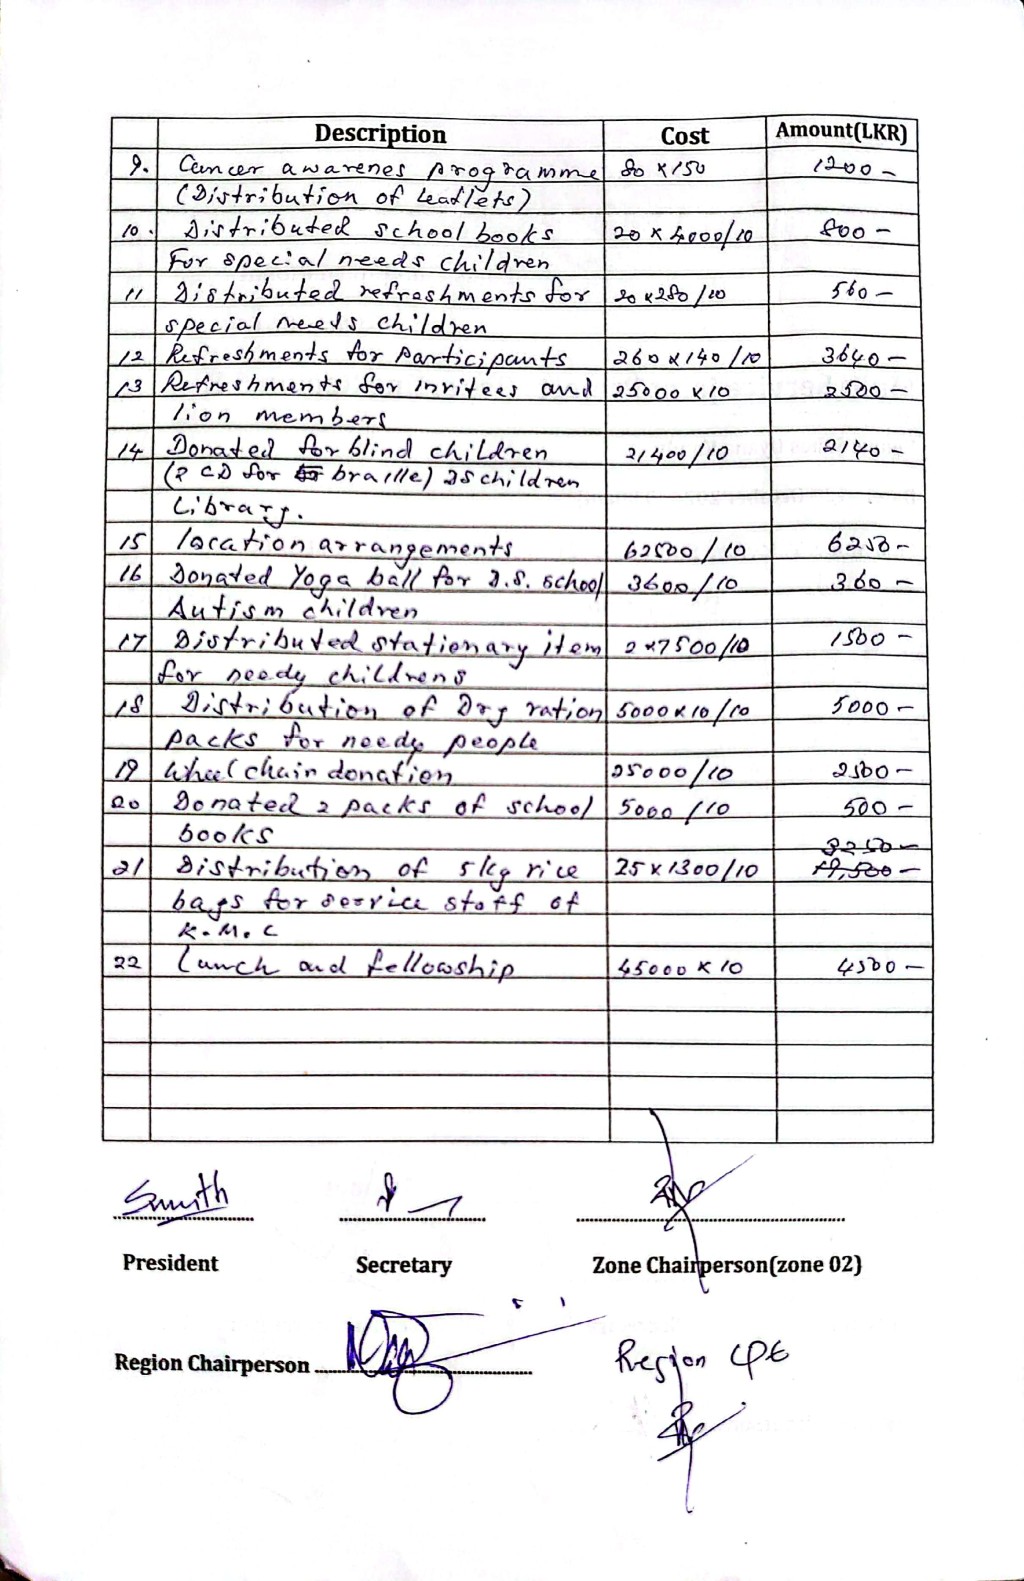 Description Cost Amount(LKR)
9. Cancer awarenes programme 80 x 150 1200 -
(Distribution of leaflets)
10. Distributed school books 20 x 4000/10 800 -
For special needs children
11 Distributed refreshments for 20 x 280/10 560 -
special needs children
12 Refreshments for participants 260 x 140/10 3640 -
13 Refreshments for invitees and 25000 x 10 2500 -
lion members
14 Donated for blind children 21400/10 2140 -
(2 CD for braille) 25 children
Library.
15 location arrangements 62500/10 6250 -
16 Donated Yoga ball for D.S. school 3600/10 360 -
Autism children
17 Distributed stationary item 2 x 7500/10 1500 -
for needy childrens
18 Distribution of Dry ration 5000 x 10/10 5000 -
packs for needy people
19 Wheel chair donation 25000/10 2500 -
20 Donated 2 packs of school 5000/10 500 -
books 3250 -
21 Distribution of 5kg rice 25 x 1300/10
bags for service staff of
K.M.C
22 Lunch and fellowship 45000 x 10 4500 -
President Secretary Zone Chairperson(zone 02)
Region Chairperson
Region